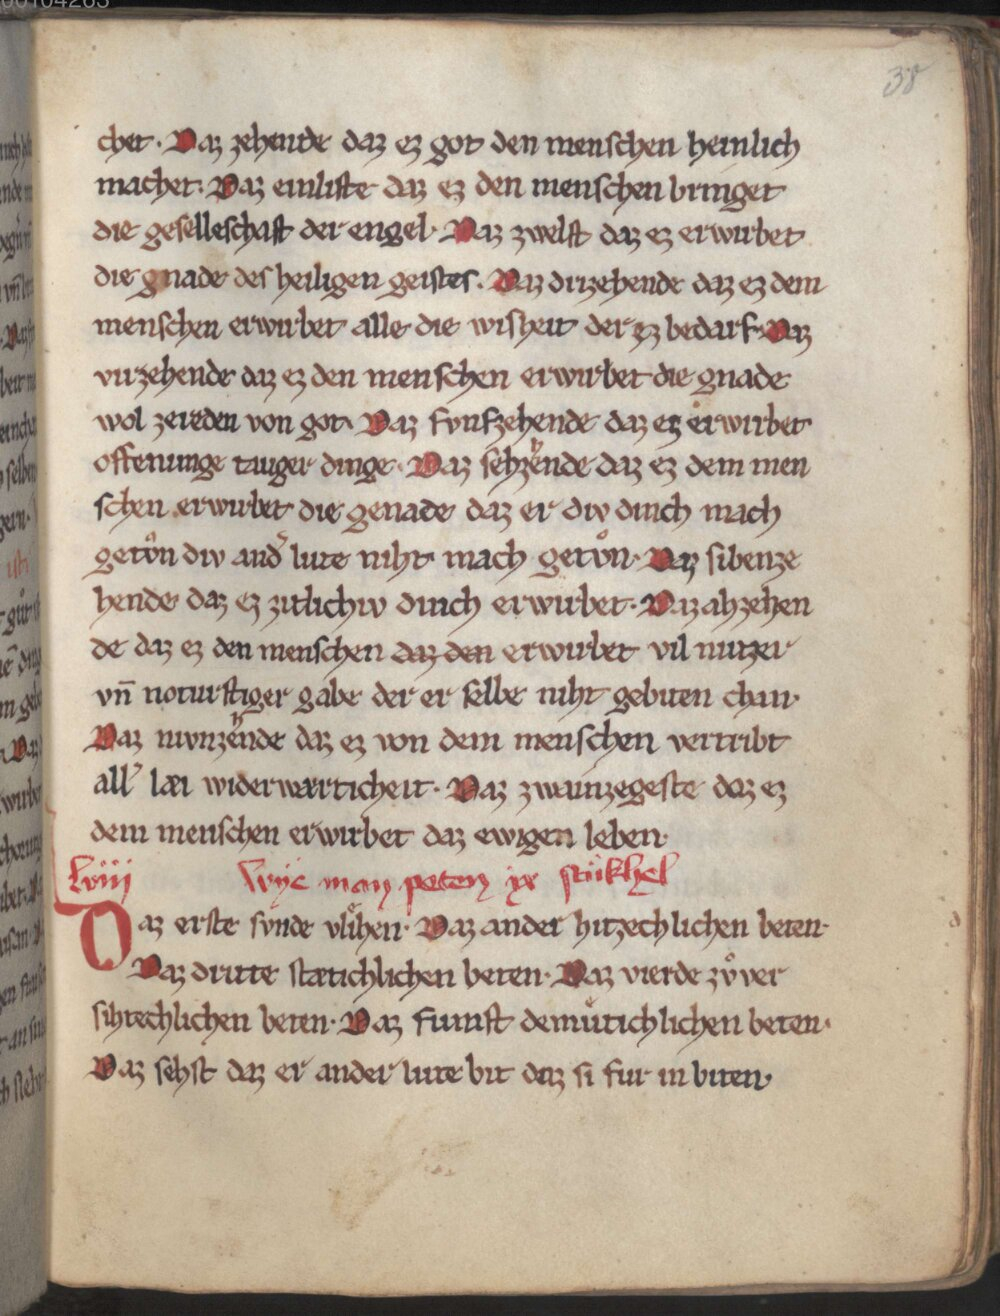 38
chet. Daz zehende daz ez got den menschen heinlich
machet. Daz einlifte daz ez den menschen bringet
die geselleschaft der engel. Daz zwelft daz ez erwirbet
die gnade des heiligen geistes. Daz drizehende daz ez dem
menschen erwirbet alle die wisheit der ez bedarf. Daz
virzehende daz ez den menschen erwirbet die gnade
wol zereden von got. Daz fvnfzehende daz ez erwirbet
offenunge tauger dinge. Daz sehzehende daz ez dem men
schen erwirbet die genade daz er div dinch mach
getvͦn div and᾽ lute niht mach getvͦn. Daz sibenze
hende daz ez zitlichiv dinch erwirbet. Daz ahzehen
de daz ez den menschen daz den erwirbet vil nutzer
vn̄ noturftiger gabe der er selbe niht gebiten chan.
Daz nivnzehende daz ez von dem menschen vertribt
all᾽ læi widerwærticheit. Daz zwainzegeste daz ez
dem menschen erwirbet daz ewigen leben.
Lviii wye man peten ix stükhel
Daz erste svnde vlihen. Daz ander hitzechlichen beten.
Daz dritte stætichlichen beten. Daz vierde zvͦver
sihtechlichen beten. Daz fumft demuͤtichlichen beten.
Daz sehst daz er ander lute bit daz si fur in biten.